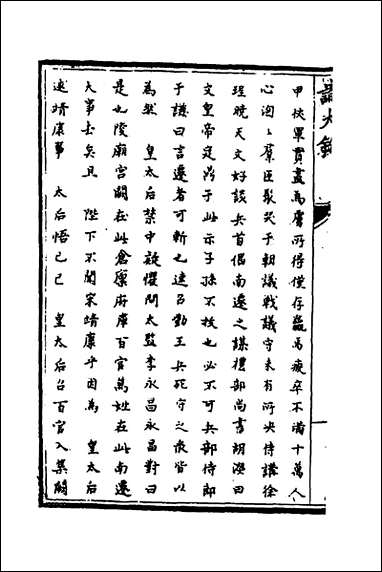 甲伎單貫盡為虜所得僅存羸馬疲卒不滿十萬人
心洶洶羣臣聚哭于朝議戰議守未有所決侍講徐
珵曉天文好談兵首倡南遷之謀禮部尚書胡濙曰
文皇帝定鼎于此示子孫不拔也必不可兵部侍郎
于謙曰言遷者可斬也速召勤王兵死守之衆皆以
為然 皇太后禁中疑懼問太監李永昌永昌對曰
是也陵廟宮闕在此倉廩府庫百官萬姓在此南遷
大事去矣且 陛下不聞宋靖康乎因為 皇太后
述靖康事 太后悟己已 皇太后召百官入集闕